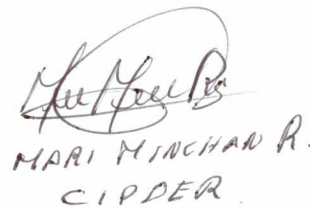 MARI MINCHAN R.
CIPDER